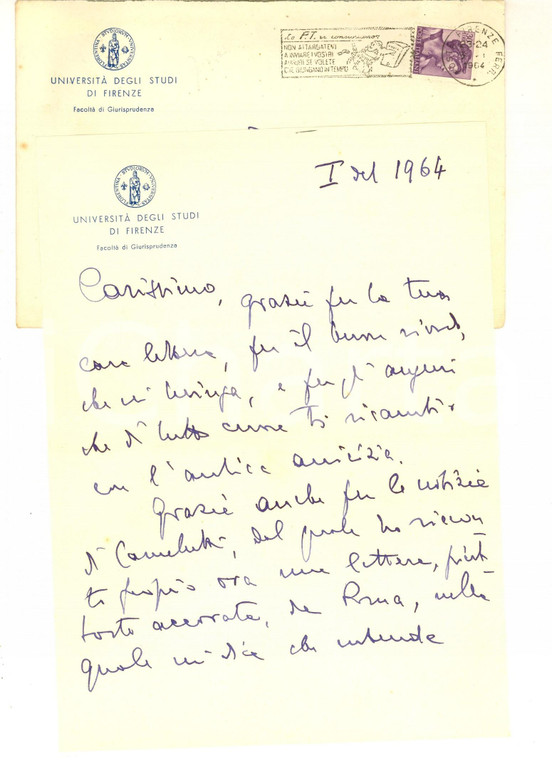 UNIVERSITÀ DEGLI STUDI
DI FIRENZE
Facoltà di Giurisprudenza
Le P.T. vi consigliano
NON AFFANNATEVI
A INVIARE I VOSTRI
AUGURI SE VOLETE
CHE GIUNGANO IN TEMPO
FIRENZE FERR.
23-24
1964
I del 1964
UNIVERSITÀ DEGLI STUDI
DI FIRENZE
Facoltà di Giurisprudenza
Carissimo, grazie per la tua
cara lettera, per il buon ricordo,
che mi lusinga, e per gli auguri
che di tutto cuore ti ricambio
con l'antica amicizia.
Grazie anche per le notizie
di Carnelutti, del quale ho ricevu
to proprio ora una lettera, piut
tosto accorata, da Roma, nella
quale mi dice che intende